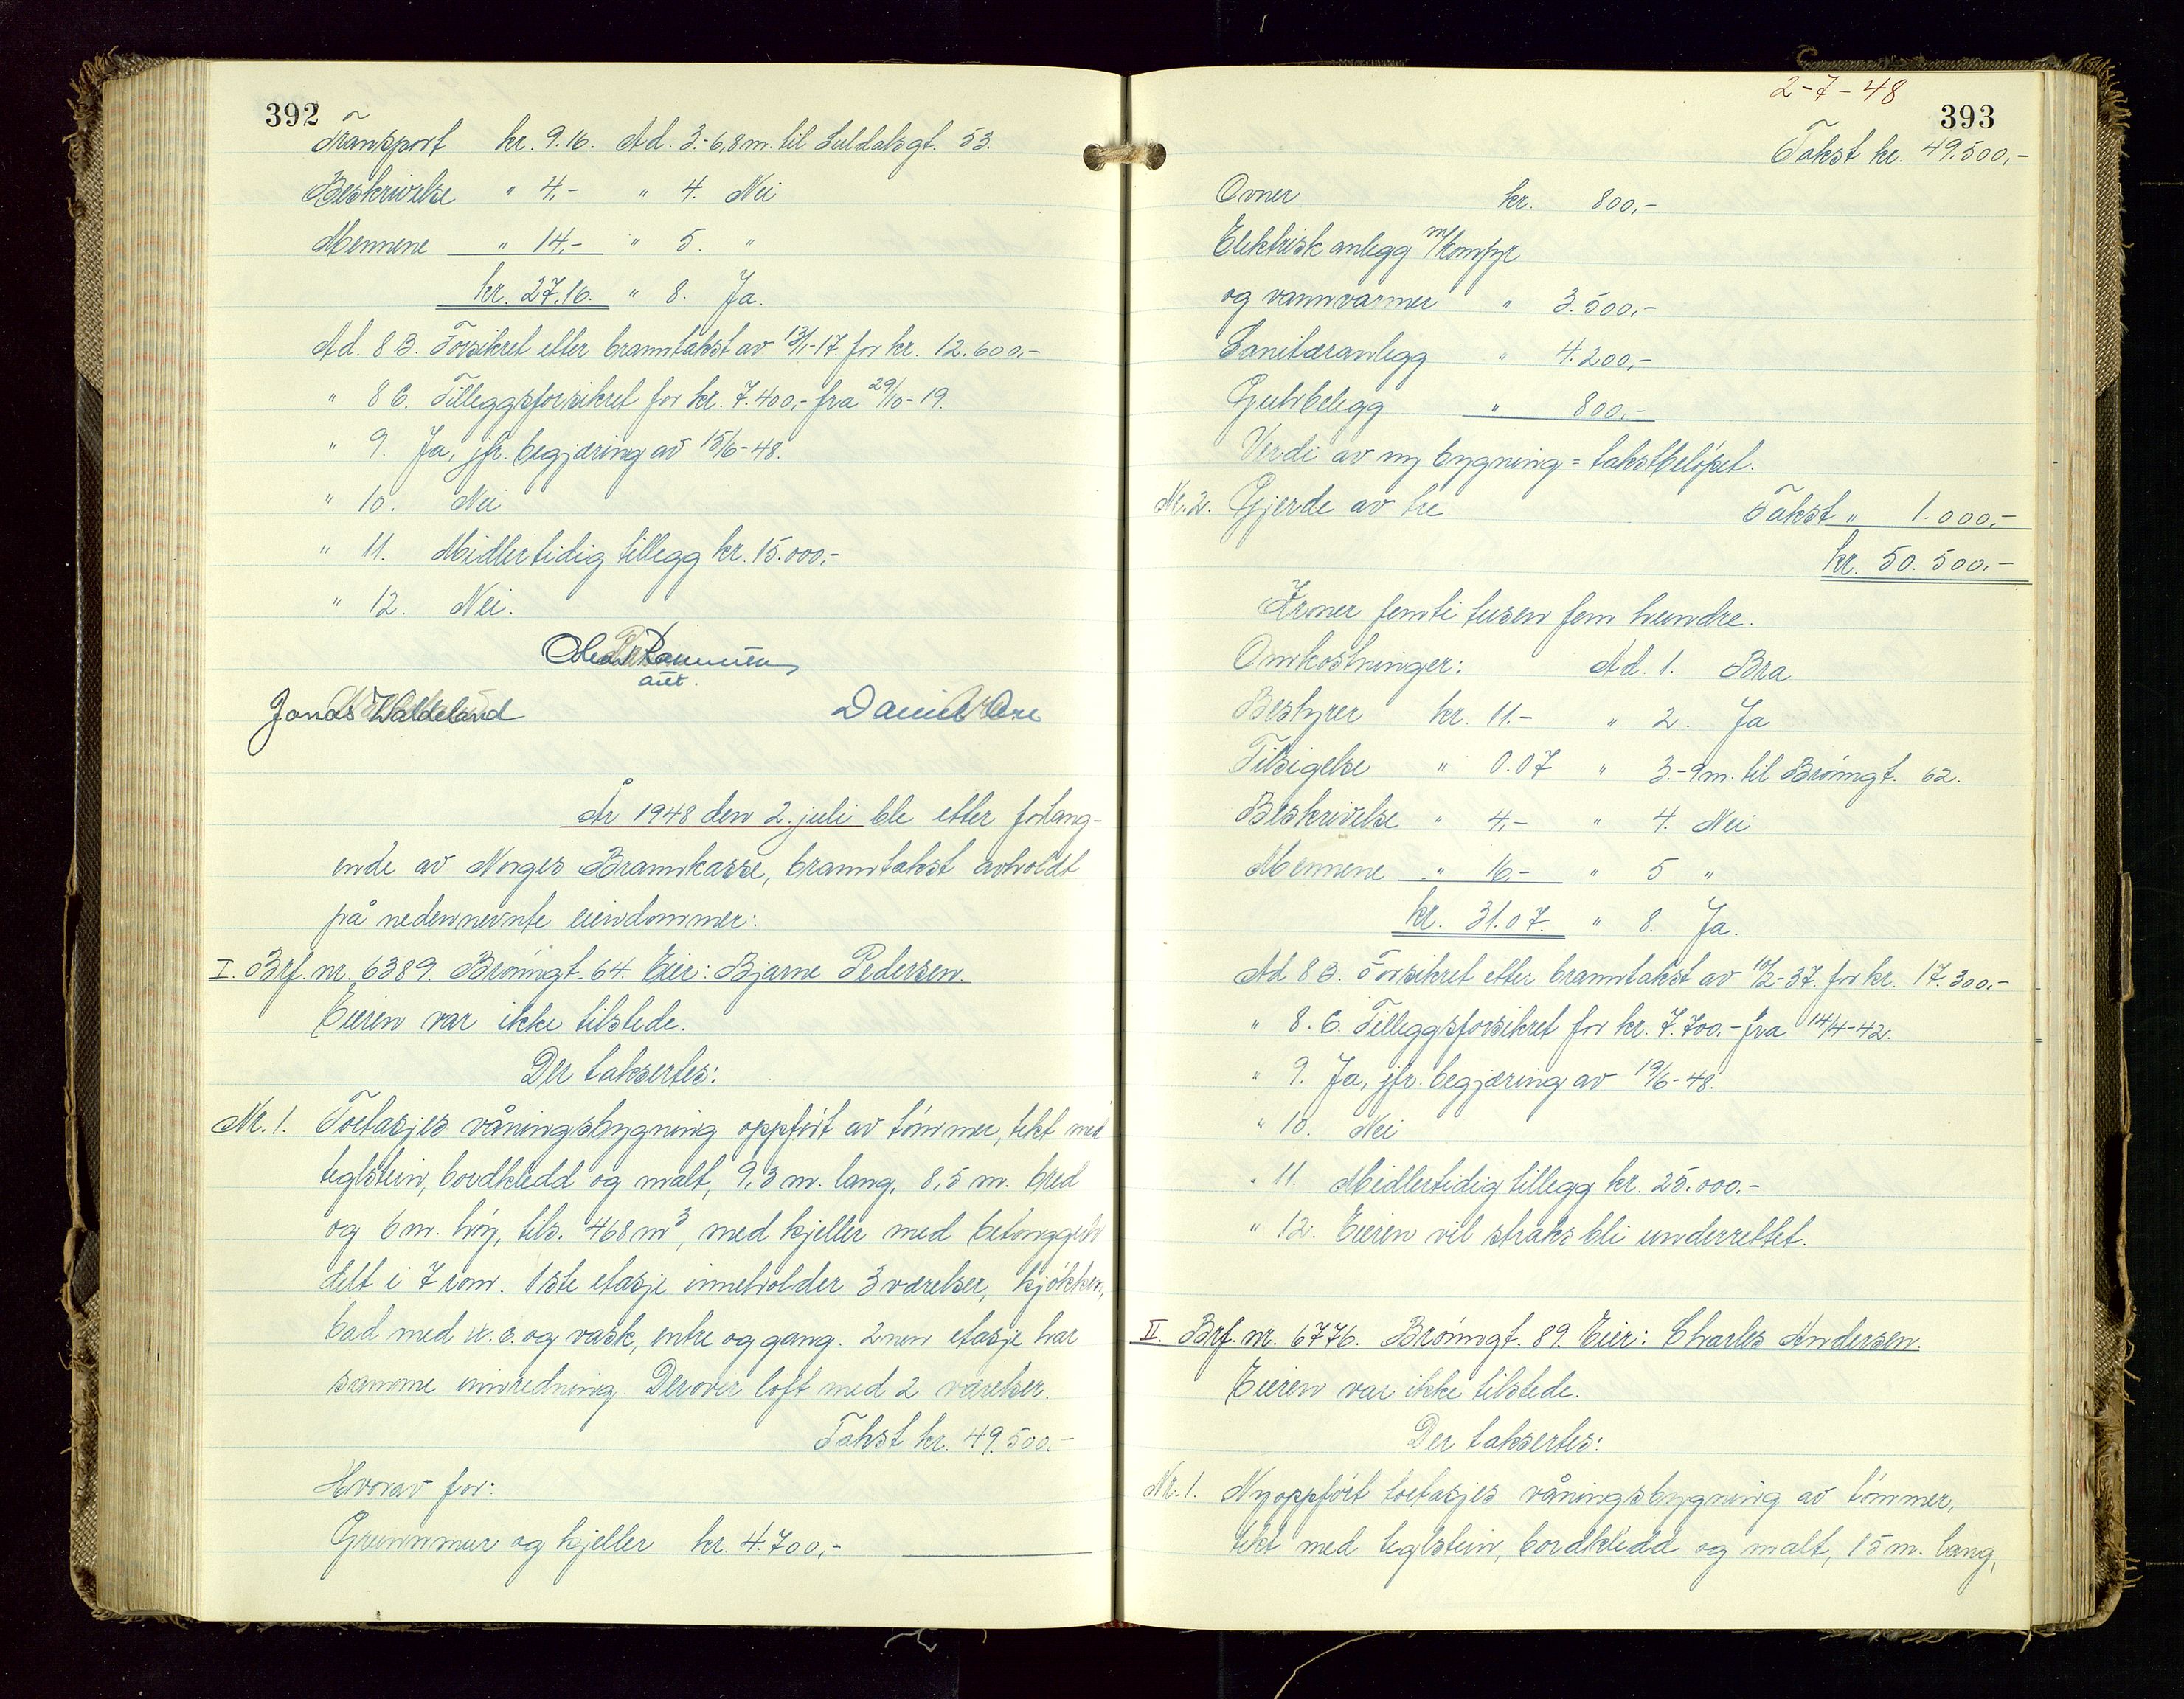 392
Transport kr. 9.16. Ad. 3.-6,8 m. til Suldalsgt. 53.
Beskrivelse " 4,- " 4. Nei
Mennene " 14,- " 5. "
kr. 27.16. " 8. Ja.
Ad. 8 B. Forsikret etter branntakst av 13/1-17. for kr. 12.600,-
" 8 C. Tilleggsforsikret for kr. 7.400,- fra 29/10-19.
" 9. Ja, jfr. begjæring av 15/6-48.
" 10. Nei
" 11. Midlertidig tillegg kr. 15.000,-
" 12. Nei.
Rasmussen
aut.
Jonas Waldeland Daniel
År 1948 den 2. juli ble etter forlang-
ende av Norges Brannkasse, branntakst avholdt
på nedennevnte eiendommer:
I. Brf. nr. 6389. Brönngt. 64. Eier: Bjarne Pedersen.
Eieren var ikke tilstede.
Der taksertes:
Nr. 1. Toetasjes våningsbygning oppfört av tömmer, tekt med
teglstein, bordkledd og malt, 9,3 m. lang, 8,5 m. bred
og 6 m. höy, tils. 468 m³, med kjeller med betonggulv
delt i 7 rom. 1ste etasje inneholder 3 værelser, kjökken,
bad med w.c. og vask, entre og gang. 2nen etasje har
samme innredning. Derover loft med 2 værelser.
Takst kr. 49.500.-
Hvorav for:
Grunnmur og kjeller kr. 4.700,-
2-7-48
393
Takst kr. 49.500,-
Ovner kr. 800,-
Elektrisk anlegg m/komfyr
og vannvarmer " 3.500,-
Sanitæranlegg " 4.200,-
Gulvbelegg " 800,-
Verdi av ny bygning = takstbelöpet.
Nr. 2. Gjerde av tre Takst " 1.000,-
kr. 50.500,-
Kroner femti tusen fem hundre.
Omkostninger: Ad. 1. Bra
Bestyrer kr. 11.- " 2. Ja
Tilsigelse " 0.07 " 3.-9 m. til Brönngt. 62.
Beskrivelse " 4,- " 4. Nei
Mennene " 16,- " 5 "
kr. 31.07. " 8. Ja.
Ad 8 B. Forsikret etter branntakst av 10/2-37. for kr. 17.300.-
" 8. C. Tilleggsforsikret for kr. 7.700.- fra 14/4-42.
" 9. Ja, jfr. begjæring av 19/6-48.
" 10. Nei
" 11. Midlertidig tillegg kr. 25.000.-
" 12. Eieren vil straks bli underrettet.
II. Brf. nr. 6776. Brönngt. 89. Eier: Charles Andersen.
Eieren var ikke tilstede.
Der taksertes:
Nr. 1. Nyoppfört toetasjes våningsbygning av tömmer,
tekt med teglstein, bordkledd og malt, 15 m. lang,